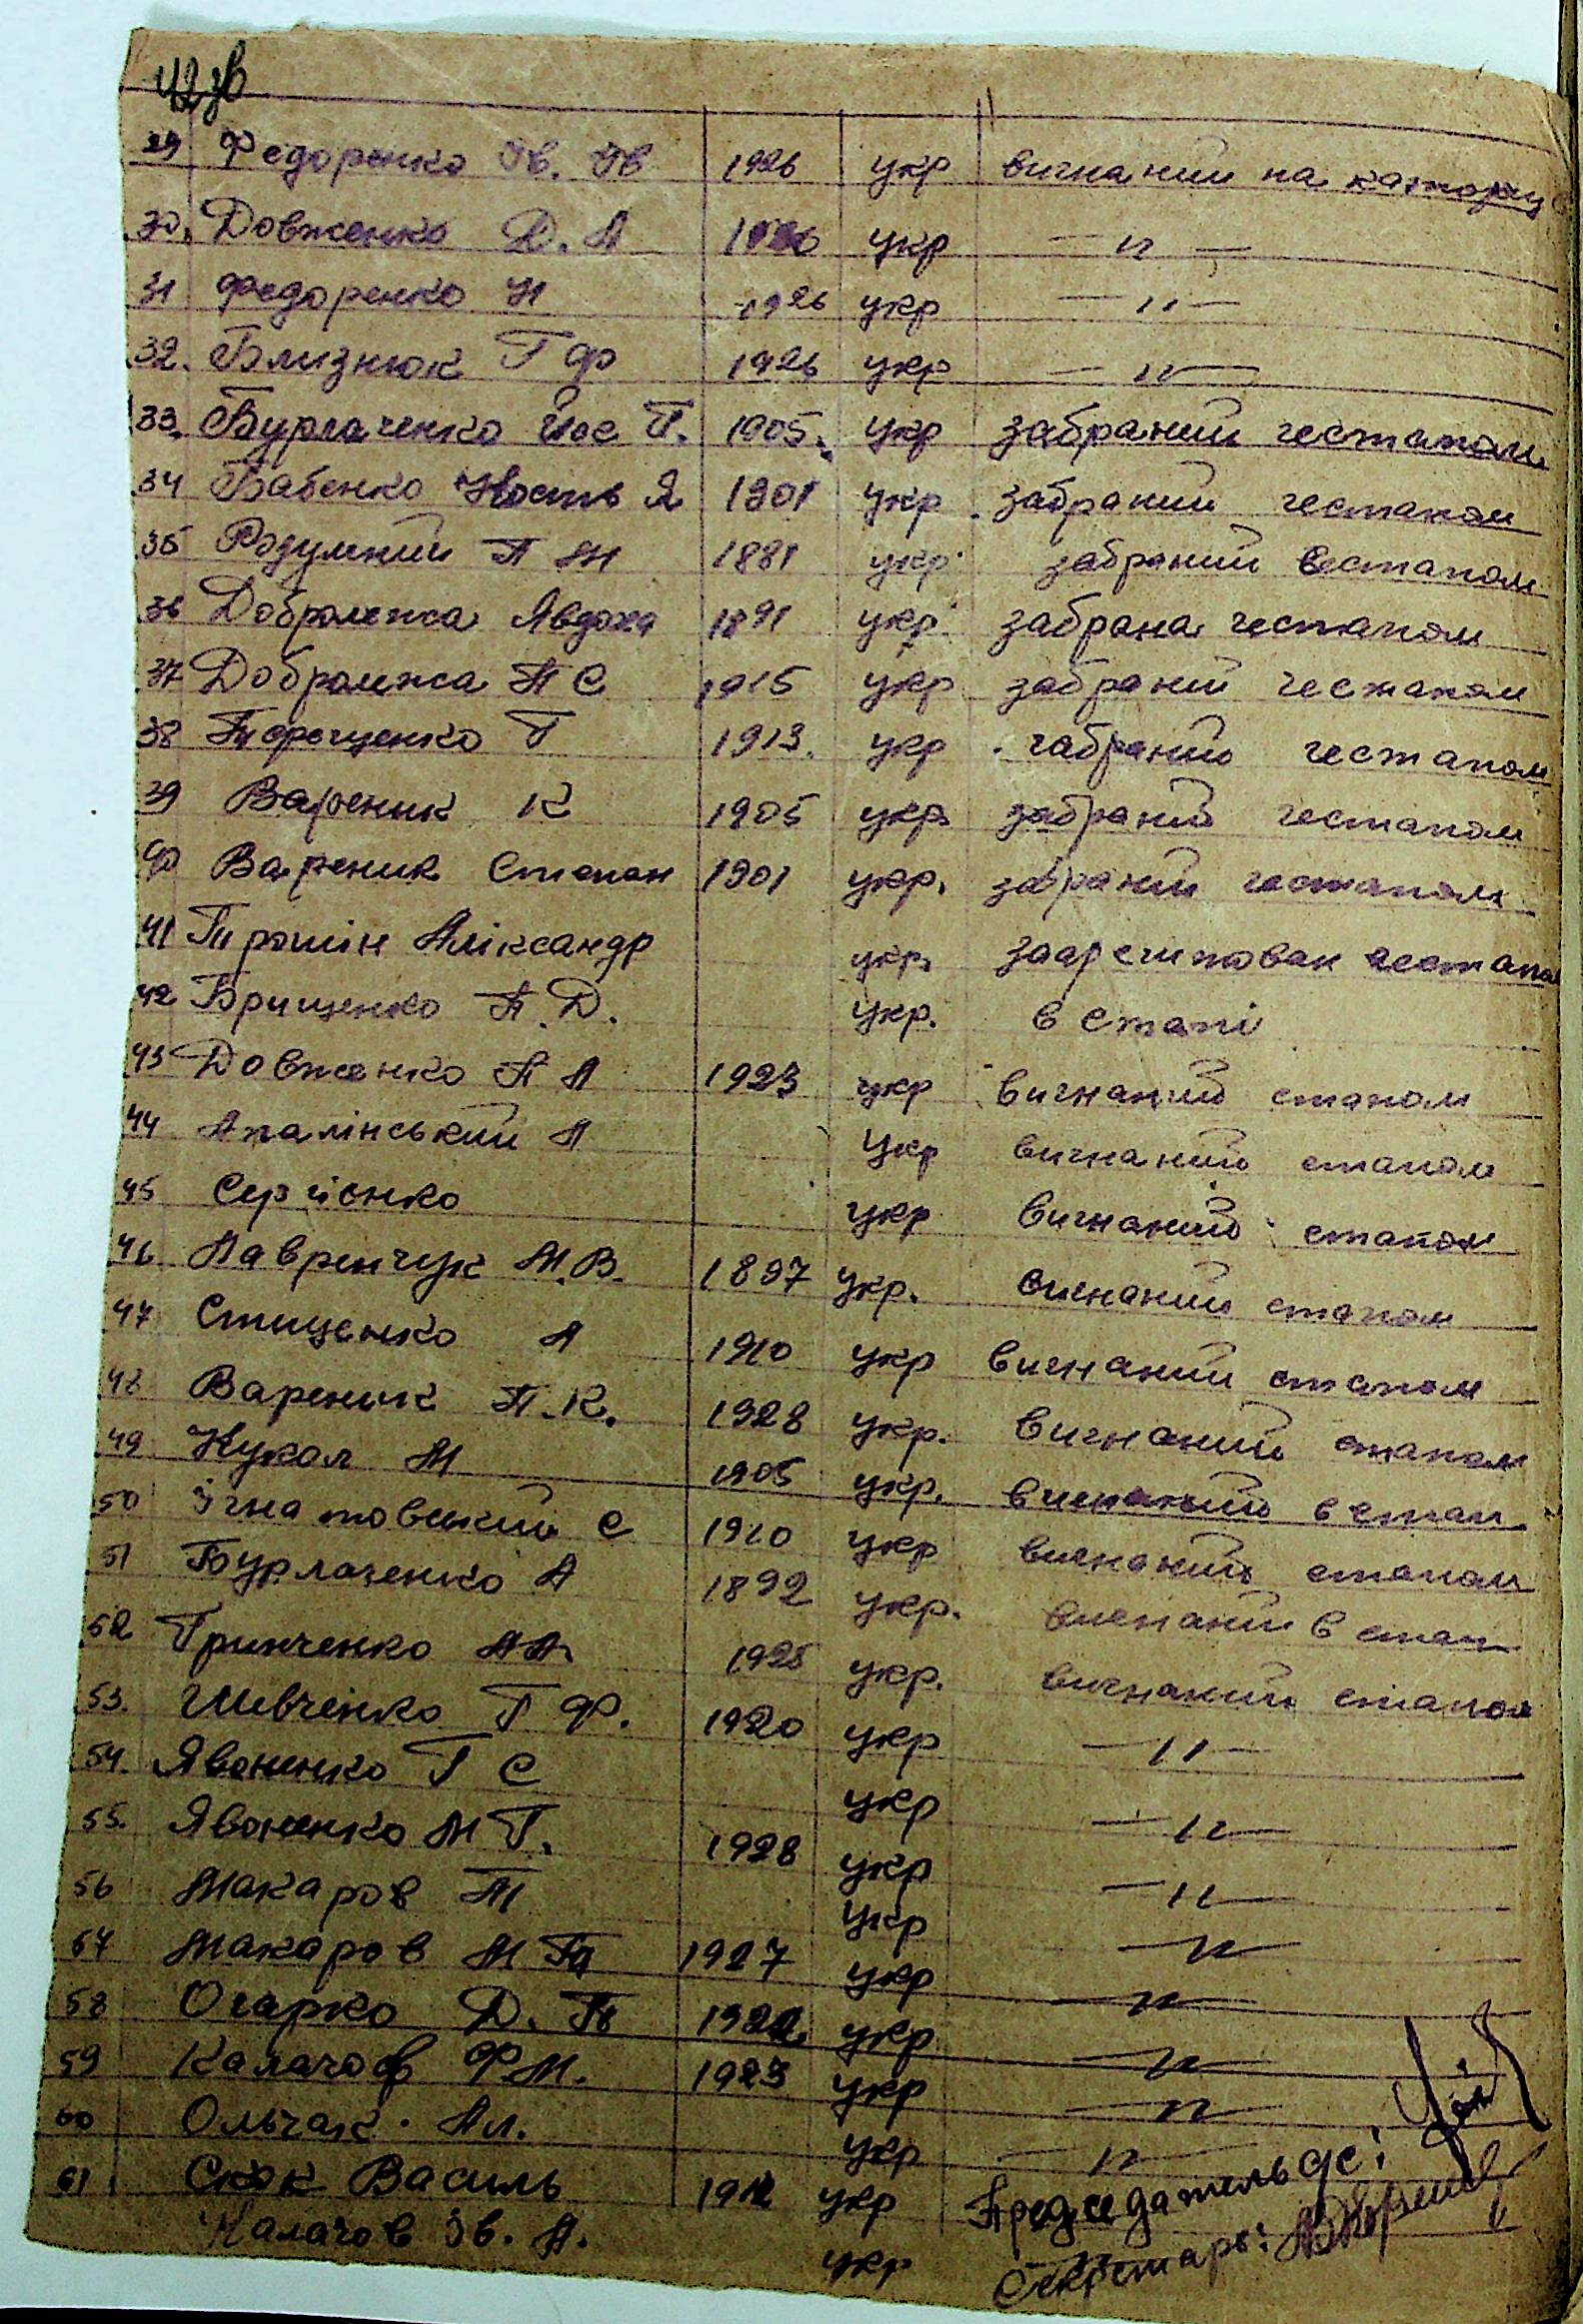 42зв
29 Федоренко Ів. Ів 1926 укр вигнаний на каторгу
30. Довженко Д. А укр — " —
31 Федоренко Н 1926 укр — " —
32. Близнюк Г Ф 1926 укр — " —
33. Бурлаченко Йос Г. 1905. укр забраний гестапом
34 Бабенко Кость Я 1901 укр забраний гестапом
35 Розумний П М 1881 укр забраний гестапом
36 Доброležа Явдоха 1891 укр забрана гестапом
37 Добролежа П С 1915 укр забраний гестапом
38 Г 1913. укр забраний гестапом
39 Вареник К 1905 укр забраний гестапом
40 Вареник Степан 1901 укр. забраний гестапом
41 Трошін Аліксандр укр. заарештован гестапо
42 Грищенко П. Д. укр. в етапі
43 Довженко П А 1923 укр вигнаний етапом
44 Апалінський А укр вигнаний етапом
45 Сергієнко укр вигнаний етапом
46 Лавренчук М. В. 1897 укр. вигнаний етапом
47 Стищенко А 1910 укр вигнаний етапом
48 Вареник П. К. 1928 укр. вигнаний етапом
49 Кукал М 1905 укр. вигнаний в етап
50 Ігнатовський С 1910 укр вигнаний етапом
51 Бурлаченко А 1892 укр. вигнаний в етап
52 Гринченко А А 1925 укр. вигнаний етапом
53. Шевченко Г Ф. 1920 укр — " —
54. Явоненко Г С укр — " —
55. Явоненко М Г. 1928 укр — " —
56 Макаров П укр — " —
57 Макаров М 1927 укр — " —
58 Огарко Д. 1922. укр — " —
59 Калачоф Ф. М. 1923 укр — " —
60 Ольчак. Ал. укр — " —
61 Скок Василь 1912 укр Председатель с/с:
Калачов Ів. А. укр Секретарь: